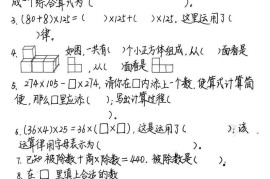 成一个综合算式为(      )
3.(80+8)×125=(   )×125+(   )×125. 这里运用了(
)律。
4. 如图,一共有(  )个小正方体组成,从(  )面看是
,从(  )面看是
5. 274×105-□×274, 请你在□内添上一个数,使算式计算简
便,那么□里应添(  );写出计算过程(
)。
6.(36×4)×25=36×(□×□), 这是运用了(      );该
运算律用字母表示为(      )
7. 已知被除数+商×除数=440. 被除数是(   )。
8. 在 □ 里填上合适的数